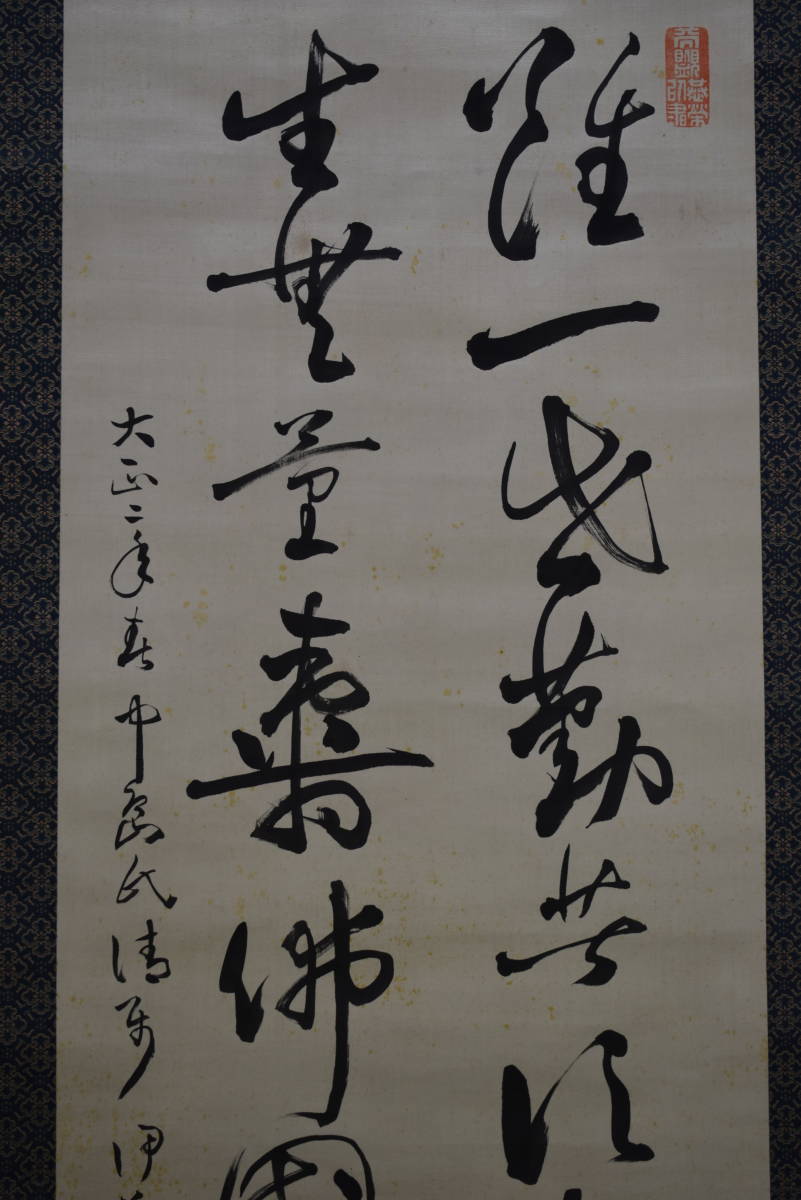 雖一世勤苦須
生無量壽佛國
大正二年春中島氏清属 伊